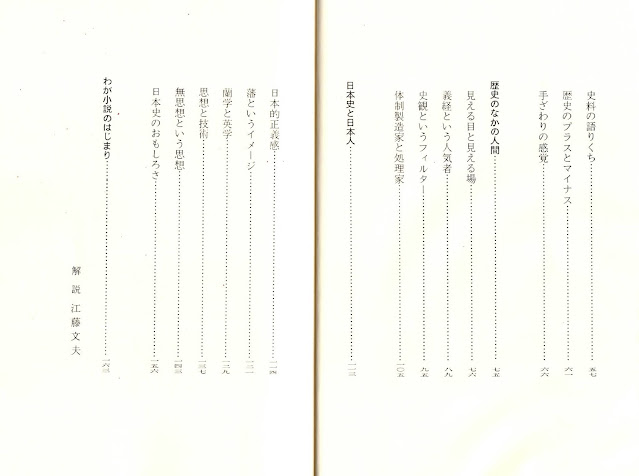 史料の語りくち……五七
歴史のプラスとマイナス……六一
手ざわりの感覚……六六
歴史のなかの人間……七五
見える目と見える場……七六
義経という人気者……八九
史観というフィルター……九五
体制製造家と処理家……一〇五
日本史と日本人……一一三
日本的正義感……一一四
藩というイメージ……一二一
蘭学と英学……一二九
思想と技術……一三七
無思想という思想……一四三
日本史のおもしろさ……一五六
わが小説のはじまり……一六三
解説 江藤文夫